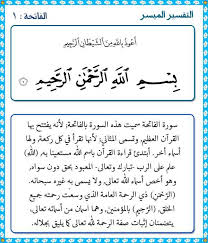 التفسير الميسر
الفاتحة : ١
أعوذ بالله من الشيطان الرجيم
بِسْمِ اللَّهِ الرَّحْمَٰنِ الرَّحِيمِ ١
سورة الفاتحة سميت هذه السورة بالفاتحة؛ لأنه يفتتح بها
القرآن العظيم، وتسمى المثاني؛ لأنها تقرأ في كل ركعة، ولها
أسماء أخر. أبتدئ قراءة القرآن باسم الله مستعينا به، (اللهِ)
علم على الرب -تبارك وتعالى- المعبود بحق دون سواه،
وهو أخص أسماء الله تعالى، ولا يسمى به غيره سبحانه.
(الرَّحْمَنِ) ذي الرحمة العامة الذي وسعت رحمته جميع
الخلق، (الرَّحِيمِ) بالمؤمنين، وهما اسمان من أسمائه تعالى،
يتضمنان إثبات صفة الرحمة لله تعالى كما يليق بجلاله.